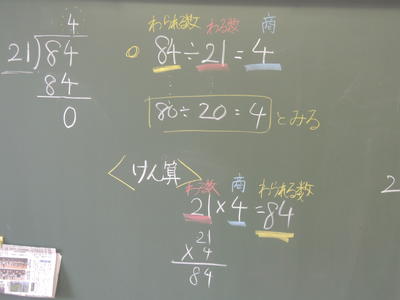 4
21)84
84
0
わられる数 わる数 商
○ 84÷21=4
80÷20=4 とみる
<けん算>
わる数 商 わられる数
21×4=84
21
×4
84
2